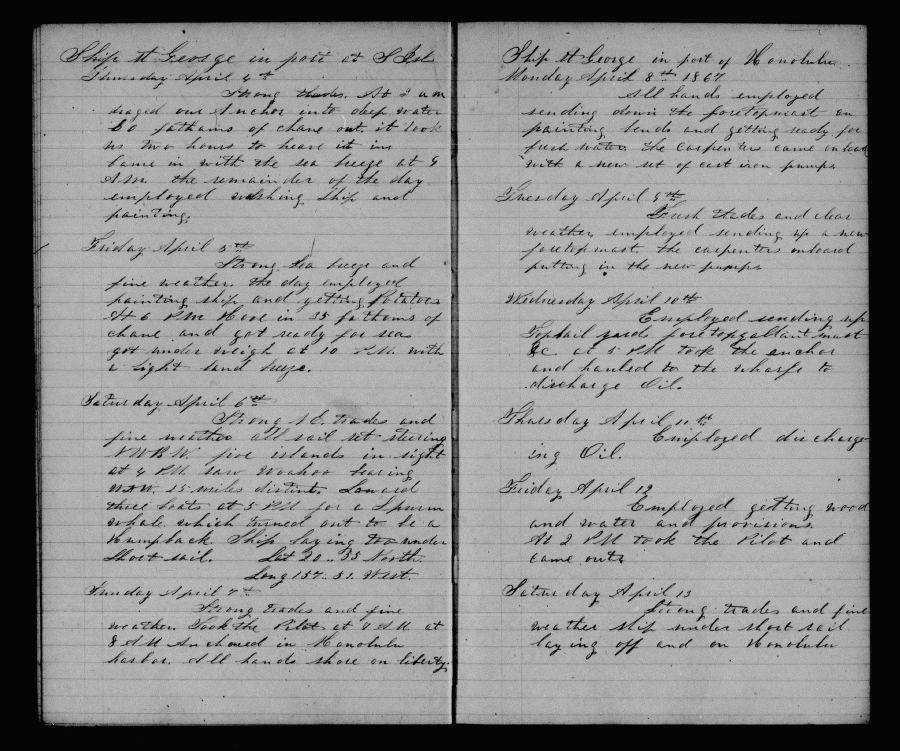 Ship St George in port at S Isls
Thursday April 4th
Strong trades. At 2 am
draged our Anchor into deep water
60 fathams of chane out. it took
us two hours to heave it in
Came in with the sea breeze at 9
A.M. the remainder of the day
employed washing Ship and
painting.
Friday April 5th
Strong Sea breeze and
fine weather. the day employed
painting ship and getting Potatoes
At 6 P.M. Hove in 35 fathoms of
chane and got ready for sea
got under weigh at 10 P.M. with
a light land breeze.
Saturday April 6th
Strong N.E. trades and
fine weather all sail set steering
five islands in sight
at 4 P.M. saw Woahoo bearing
15 miles distint. Lowared
three boats at 5 P.M. for a Spurm
whale which turned out to be a
Humpback. Ship laying to under
Short sail. Lat 20.. 35 North.
Long 157.. 51. West.
Sunday April 7th
Strong trades and fine
weather. Took the Pilot at 7 A.M. at
8 A.M. Anchored in Honolulu
harbor. All hands shore on liberty.
Ship St George in port of Honolulu
Monday April 8th 1867
All hands employed
sending down the foretopmast on
painting bends and getting ready for
fresh water. the Carpenters came onboard
with a new set of cast iron pumps
Tuesday April 9th
Fresh trades and clear
weather employed sending up a new
foretopmast. the carpenters onboard
putting in the new pumps
Wednesday April 10th
Employed sending up
Topsail yards foretopgallant mast
&c. at 5 P.M. took the anchor
and hauled to the wharfe to
discharge Oil.
Thursday April 11th
Employed discharge
ing Oil.
Friday April 12
Employed getting wood
and water and provisions.
At 2 P.M. took the Pilot and
came out.
Saturday April 13
Strong trades and fine
weather ship under short sail
laying off and on Honolulu